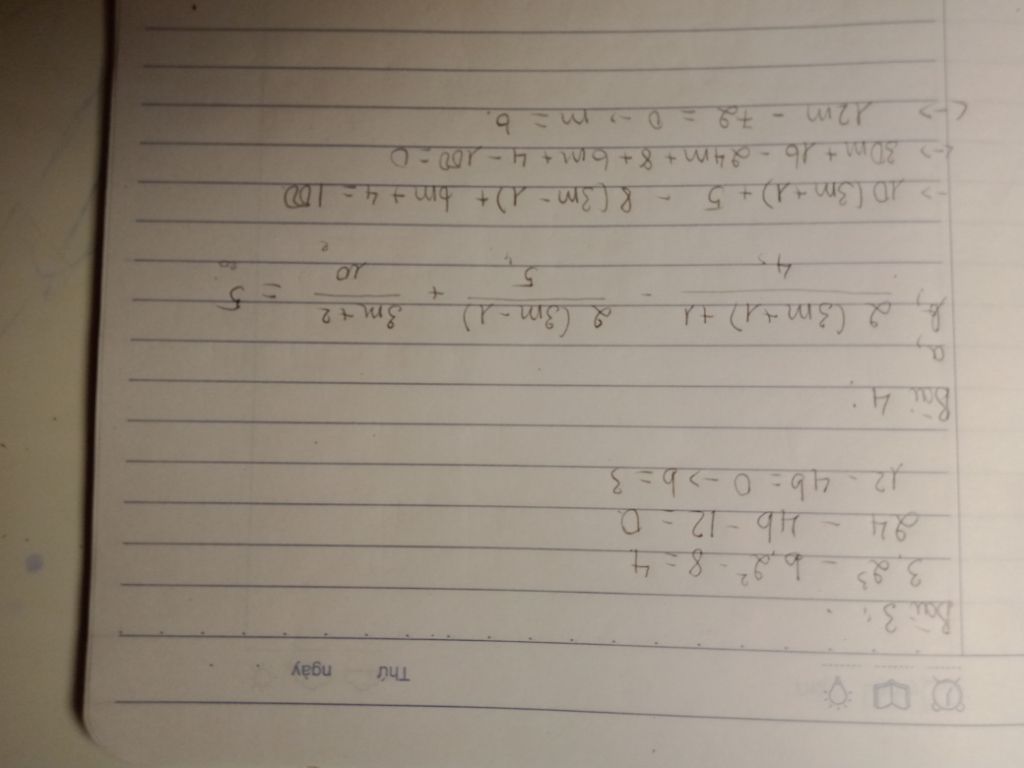 Thứ ngày
Bài 3:
3.2³ - b.2² - 8 = 4
24 - 4b - 12 = 0
12 - 4b = 0 -> b = 3
Bài 4:
a,
b, \frac{2(3m+1)+1}{4} - \frac{2(3m-1)}{5} + \frac{3m+2}{10} = 5
-> 10(3m+1)+5 - 8(3m-1)+ 6m+4 = 100
<-> 30m+16 - 24m+8+6m+4-100=0
<-> 12m - 72 = 0 -> m = 6.